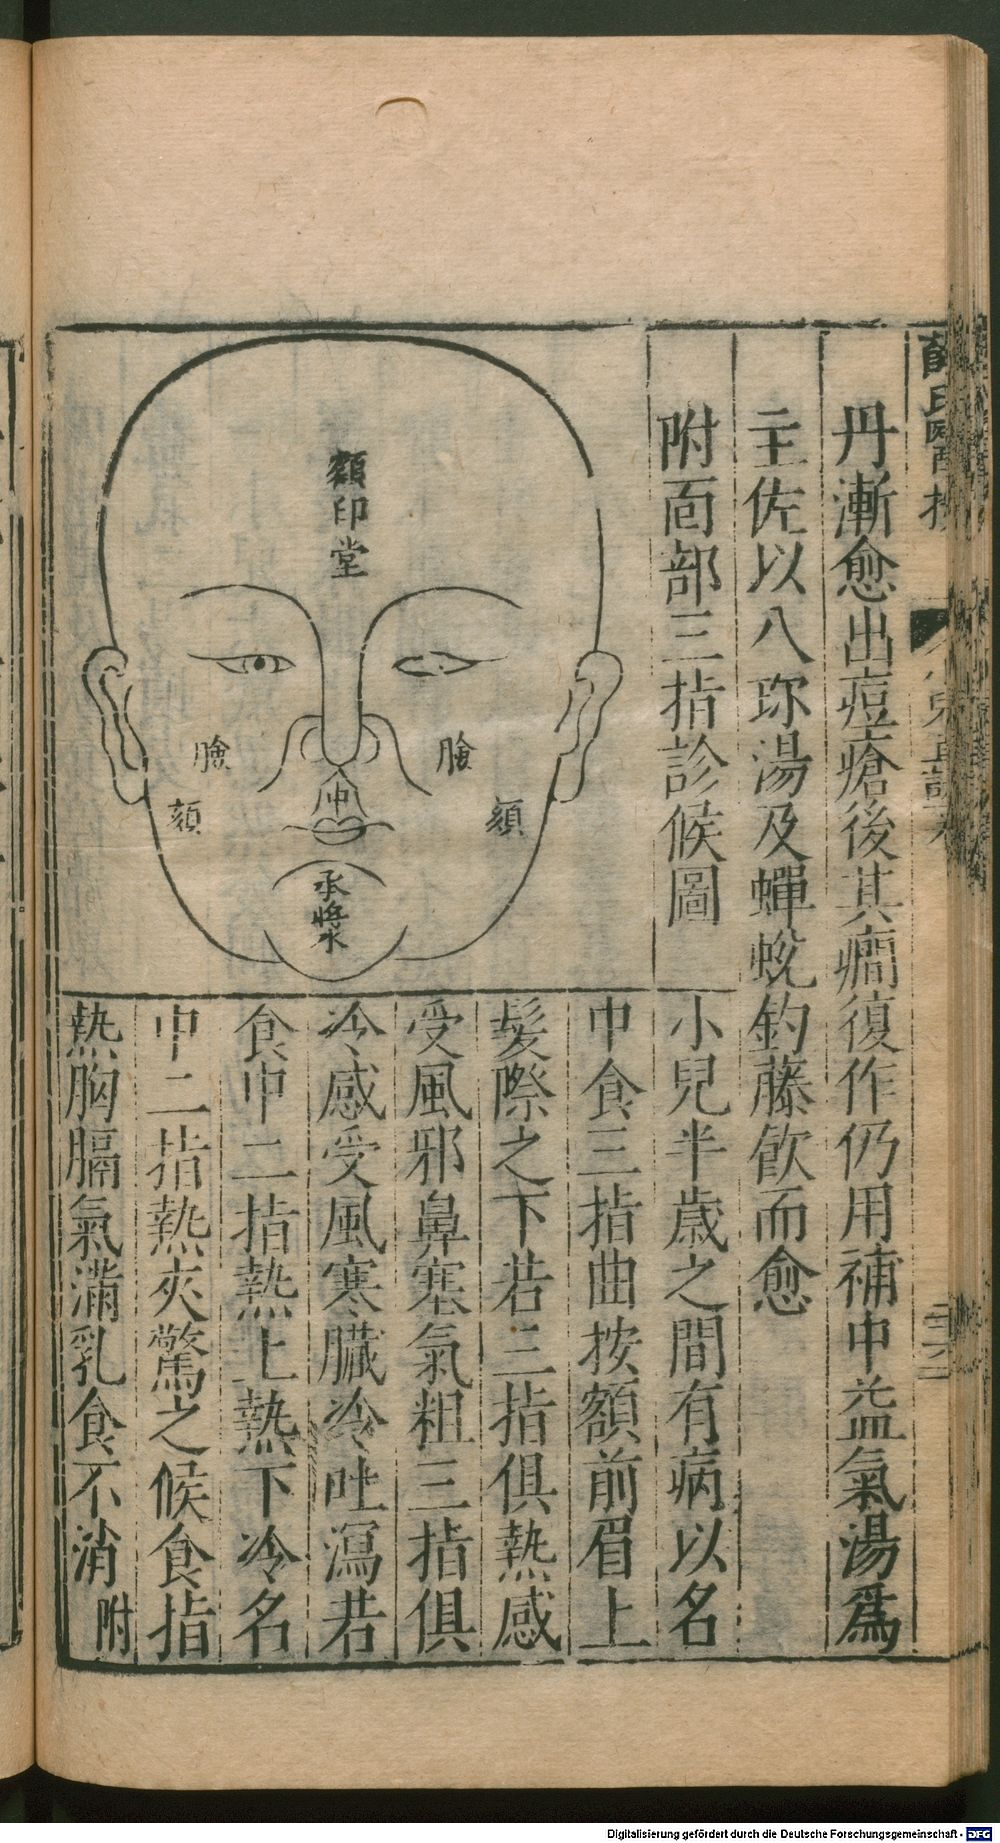 薛氏醫
丹漸愈出痘瘡後其癎復作仍用補中益氣湯爲
主佐以八珎湯及蟬蛻釣藤飲而愈
附面部三指診候圖
小兒半歲之間有病以名
中食三指曲按額前眉上
髮際之下若三指俱熱感
受風邪鼻塞氣粗三指俱
冷感受風寒臟冷吐瀉若
食中二指熱上熱下冷名
中二指熱夾驚之候食指
熱胸膈氣滿乳食不消 附
額印堂
臉
臉
頰
頰
中
承漿
Digitalisierung gefördert durch die Deutsche Forschungsgemeinschaft - DFG